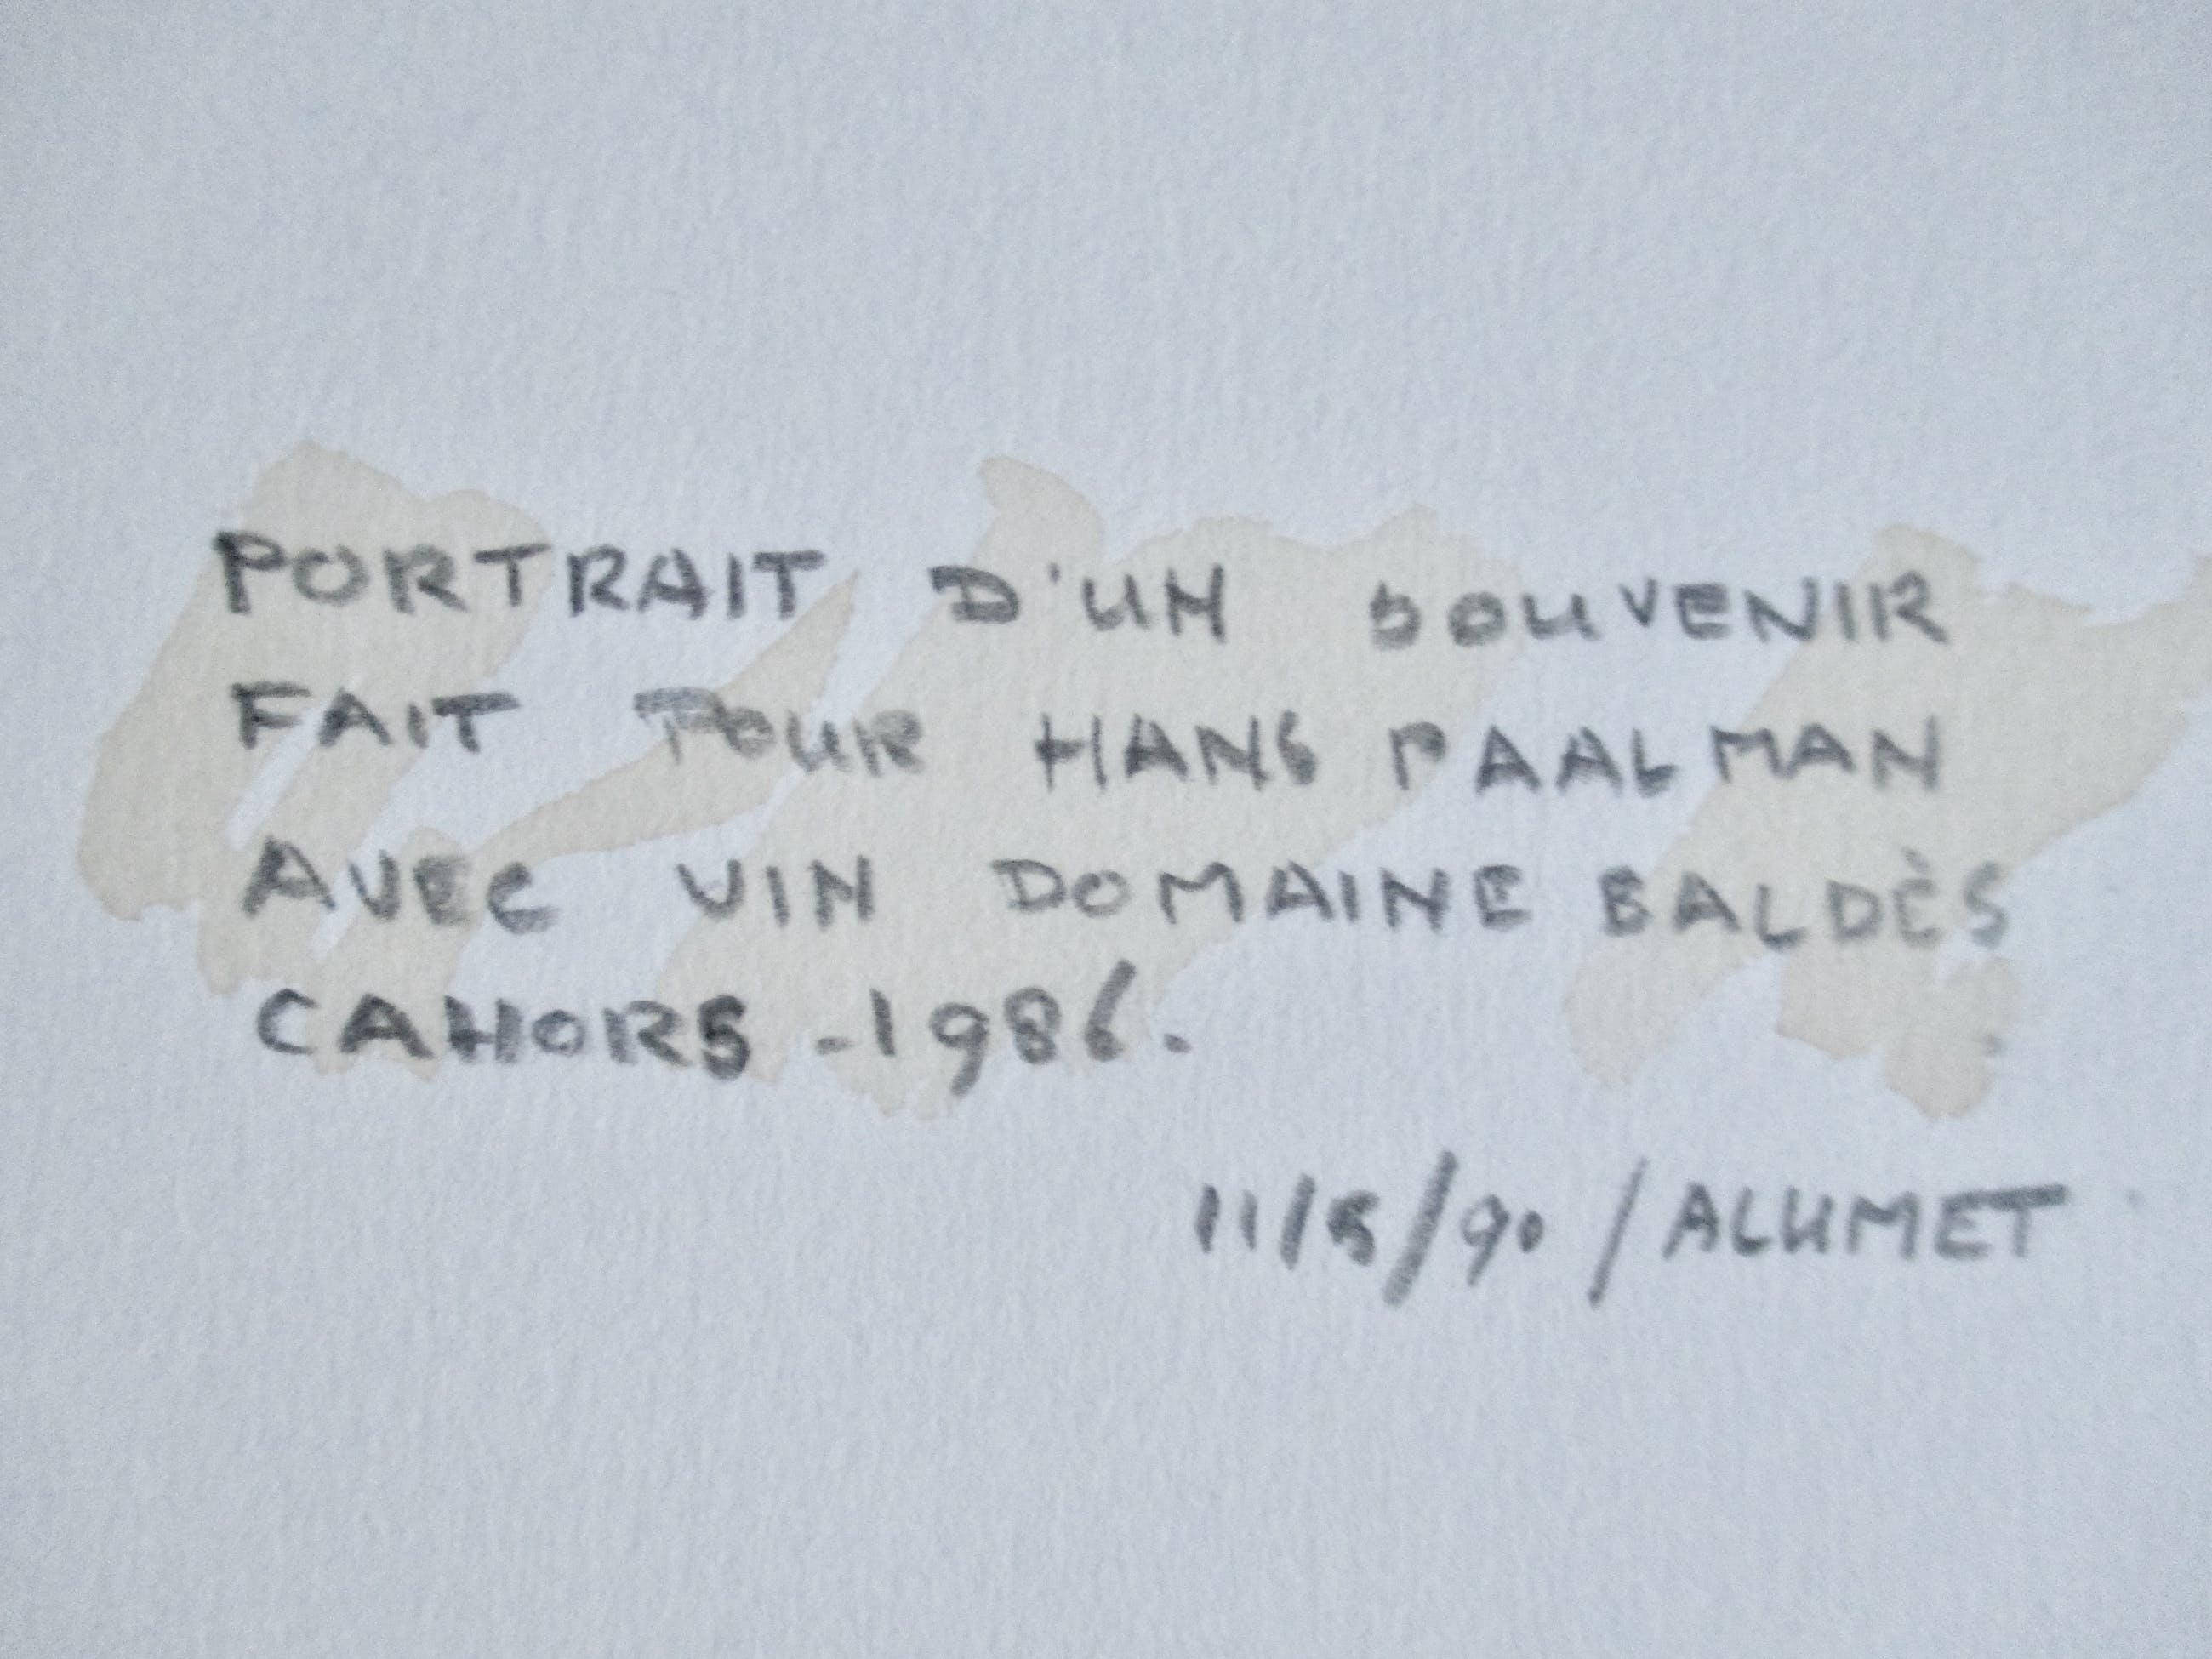 PORTRAIT D'UN SOUVENIR
FAIT POUR HANS PAALMAN
AVEC VIN DOMAINE BALDÈS
CAHORS - 1986.
11/5/90 / ALUMET